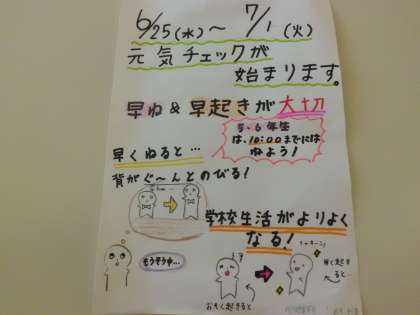 6/25(水)～7/1(火)
元気チェックが
始まります。
早ね&早起きが大切
5・6年生
は、10:00までには
ねよう!
早くねると…
背がぐ～んとのびる!
学校生活がよりよく
なる!
もうそう中…
シャキーン
早く起き
ると…
おそく起きると